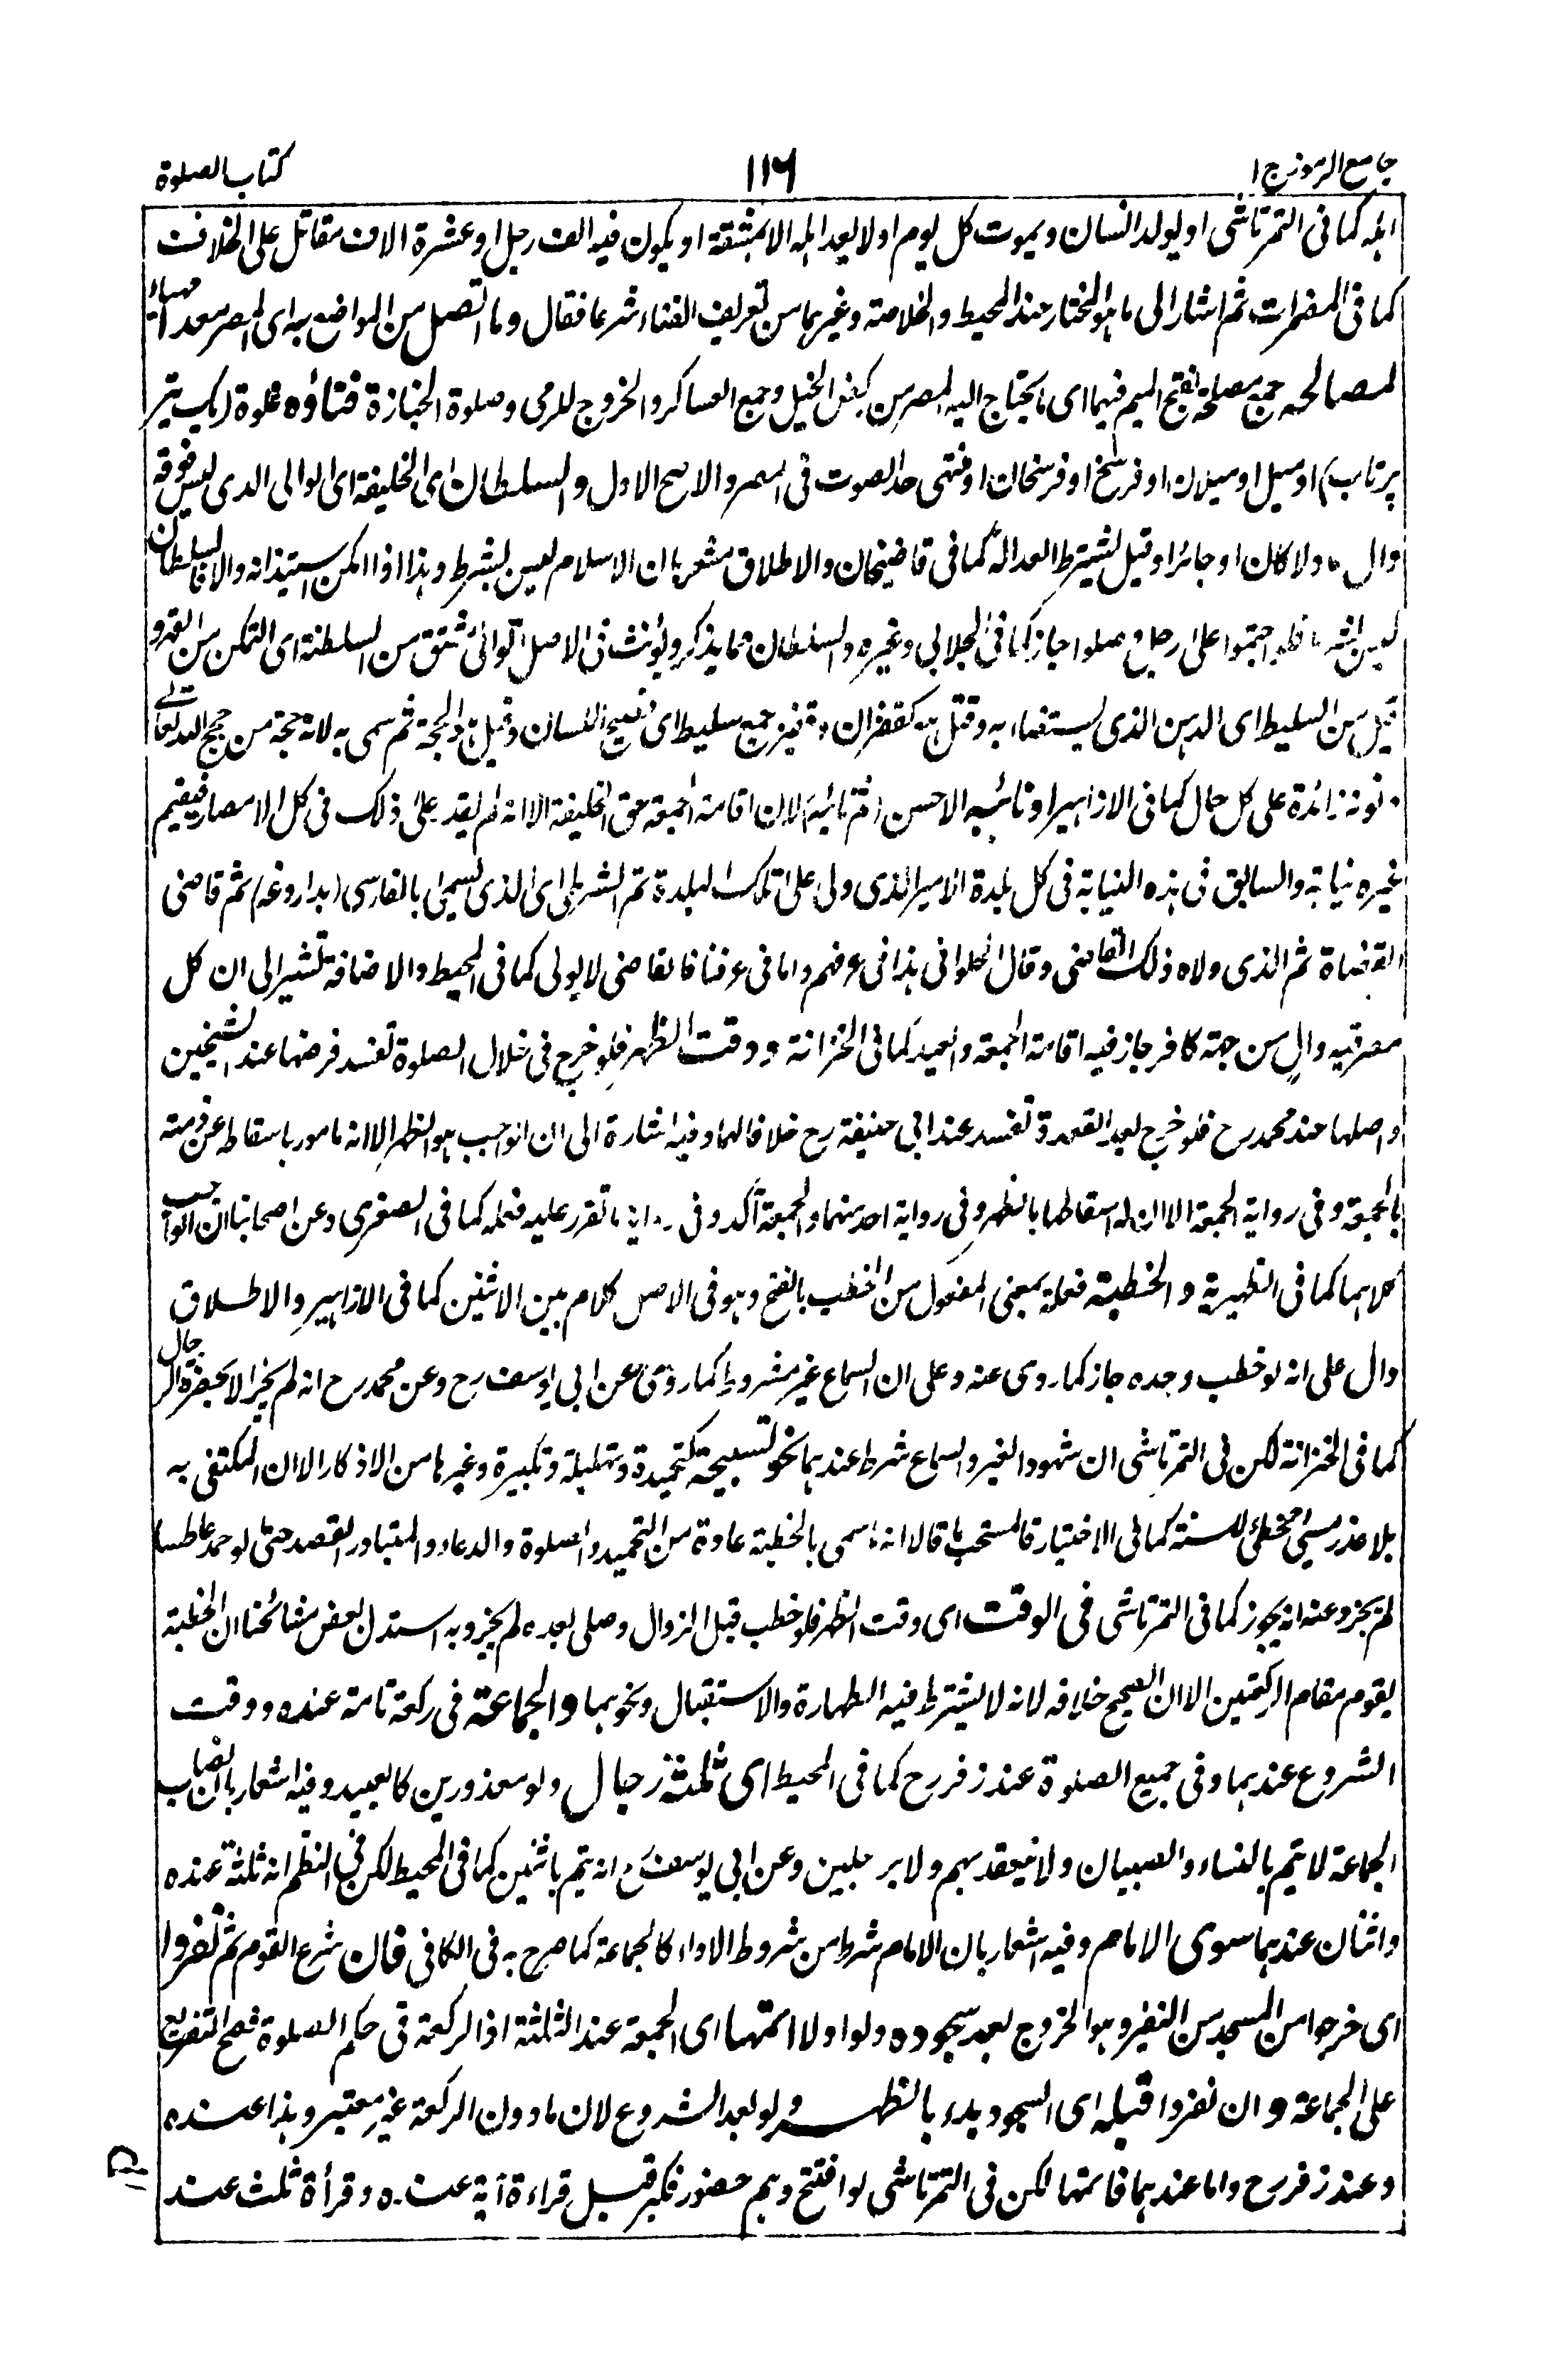 جامع الرموز ج ١
١١٦
كتاب الصلوة
اهله كما فى التمرتاشى او يولد انسان ويموت كل يوم او لا يعد اهله الا بمشقة او يكون فيه الف رجل او عشرة الاف مقاتل على الخلافت
كما فى المضمرات ثم اشار الى ما هو المختار عند المحيط والخلاصة وغيرهما من تعريف الفناء شرعا فقال وما اتصل من المواضع به اى المصر معدا اى مهياء
لمصالحه جمع مصلحة بفتح الميم فيهما اى ما يحتاج اليه المصر من ركض الخيل وجمع العساكر والخروج للرمى وصلوة الجنازة فناؤه غلوة (يك تير
پرتاب) او ميل او ميلان او فرسخ او فرسخان او منتهى حد الصوت فى المصر والاصح الاول والسلطان اى الخليفة اى الوالى الذى ليس فوقه
وال عادلا كان او جائرا وقيل يشترط العدالة كما فى قاضيخان والاطلاق مشعر بان الاسلام ليس بشرط وهذا اذا امكن استيذانه والا فالسلطان
ليس بشرط فلو اجتمعوا على رجل وصلوا جاز كما فى الجلابى وغيره والسلطان مما يذكر ويؤنث فى الاصل الوالى مشتق من السلطنة اى التمكن من القهر و
قيل من السليط اى الدهن الذى يستضاء به وقيل هو كقفزان وقفيز جمع سليط اى فصيح اللسان وقيل الحجة ثم سمى به لانه حجة من حجج الله تعالى
ونونه زائدة على كل حال كما فى الازاهير او نائبه الاحسن ثم نائبه الا ان اقامة الجمعة حق الخليفة الا انه لم يقدر على ذلك فى كل الامصار فيقيم
غيره نيابة والسابق فى هذه النيابة فى كل بلدة الامير الذى ولى على تلك البلدة ثم الشرطى اى الذى يسمى بالفارسى (بداروغه) ثم قاضى
القضاة ثم الذى ولاه ذلك القاضى وقال الحلوانى هذا فى عرفهم واما فى عرفنا فالقاضى لا يولى كما فى المحيط والاضافة تشير الى ان كل
مصر فيه وال من جهة كافر جاز فيه اقامة الجمعة والعيد كما فى الخزانة ووقت الظهر فلو خرج فى خلال الصلوة تفسد فرضها عند الشيخين
واصلها عند محمد رح فلو خرج بعد القعدة تفسد عند ابى حنيفة رح خلافا لهما وفيه اشارة الى ان الواجب هو الظهر الا انه مامور باسقاطه عن ذمته
بالجمعة وفى رواية الجمعة الا ان له اسقاطها بالظهر وفى رواية احد منهما والجمعة آكد وفى رواية ما تقرر عليه فعله كما فى الصغرى وعن اصحابنا ان الواجب
كلاهما كما فى الظهيرية والخطبة فعلة بمعنى المفعول من الخطب بالفتح وهو فى الاصل كلام بين الاثنين كما فى الازاهير والاطلاق
دال على انه لو خطب وحده جاز كما روى عنه وعلى ان السماع غير مشروط كما روى عن ابى يوسف رح وعن محمد رح انه لم يجز الا بحضرة الرجال
كما فى الخزانة لكن فى التمرتاشى ان شهود الغير والسماع شرط عندهما نحو تسبيحة كتحميدة وتهليلة وتكبيرة وغيرها من الاذكار الا ان المكتفى به
بلا عذر مسئ مخطئ للسنة كما فى الاختيار فالمستحب ما قالا انه ما سمى بالخطبة عادة من التحميد والصلوة والدعاء والمتبادر القصد حتى لو حمد عاطسا
لم يجز وعنه انه يجوز كما فى التمرتاشى فى الوقت اى وقت الظهر فلو خطب قبل الزوال وصلى بعده لم يجز وبه استدل بعض مشائخنا ان الخطبة
يقوم مقام الركعتين الا ان الصحيح خلافه لانه لا يشترط فيه الطهارة والاستقبال ونحوهما والجماعة فى ركعة تامة عنده ووقت
الشروع عندهما وفى جميع الصلوة عند زفر رح كما فى المحيط اى ثلثة رجال ولو معذورين كالعبيد وفيه اشعار بان نصاب
الجماعة لا يتم بالنساء والصبيان ولا ينعقد بهم ولا برجلين وعن ابى يوسف رح انه يتم باثنين كما فى المحيط لكن فى النظم انه ثلثة عنده
واثنان عندهما سوى الامام وفيه اشعار بان الامام شرط من شروط الاداء كالجماعة كما صرح به فى الكافى فان شرع القوم ثم نفروا
اى خرجوا من المسجد من النفر وهو الخروج بعد سجوده ولو اولا اتمها اى الجمعة عند الثلثة اذ الركعة فى حكم الصلوة فصح التفريع
على الجماعة وان نفروا قبله اى السجود بدء بالظهر ولو بعد الشروع لان ما دون الركعة غير معتبر وهذا عنده
وعند زفر رح واما عندهما فاتمها لكن فى التمرتاشى لو افتتح وهم حضور فكبر قبل قراءة آية عنده وقرأة ثلث عند